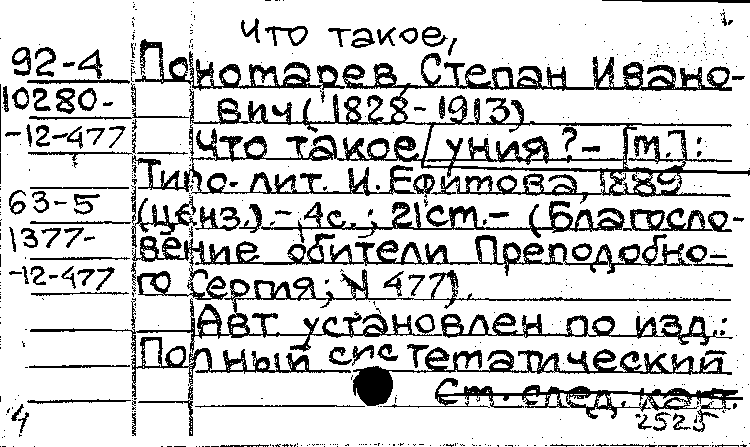 Что такое,
92-4 Пономарев, Степан Ивано-
10280- вич (1828-1913).
-12-477 Что такое/ уния? - [т.]:
Типо-лит. И. Ефимова, 1889
63-5 (ценз.). - 4с.; 21см. - (Благосло-
1377- вение обители Преподобно-
-12-477 го Сергия; N 477).
Авт. установлен по изд.:
Полный систематический
См. след. карт.
4 2525